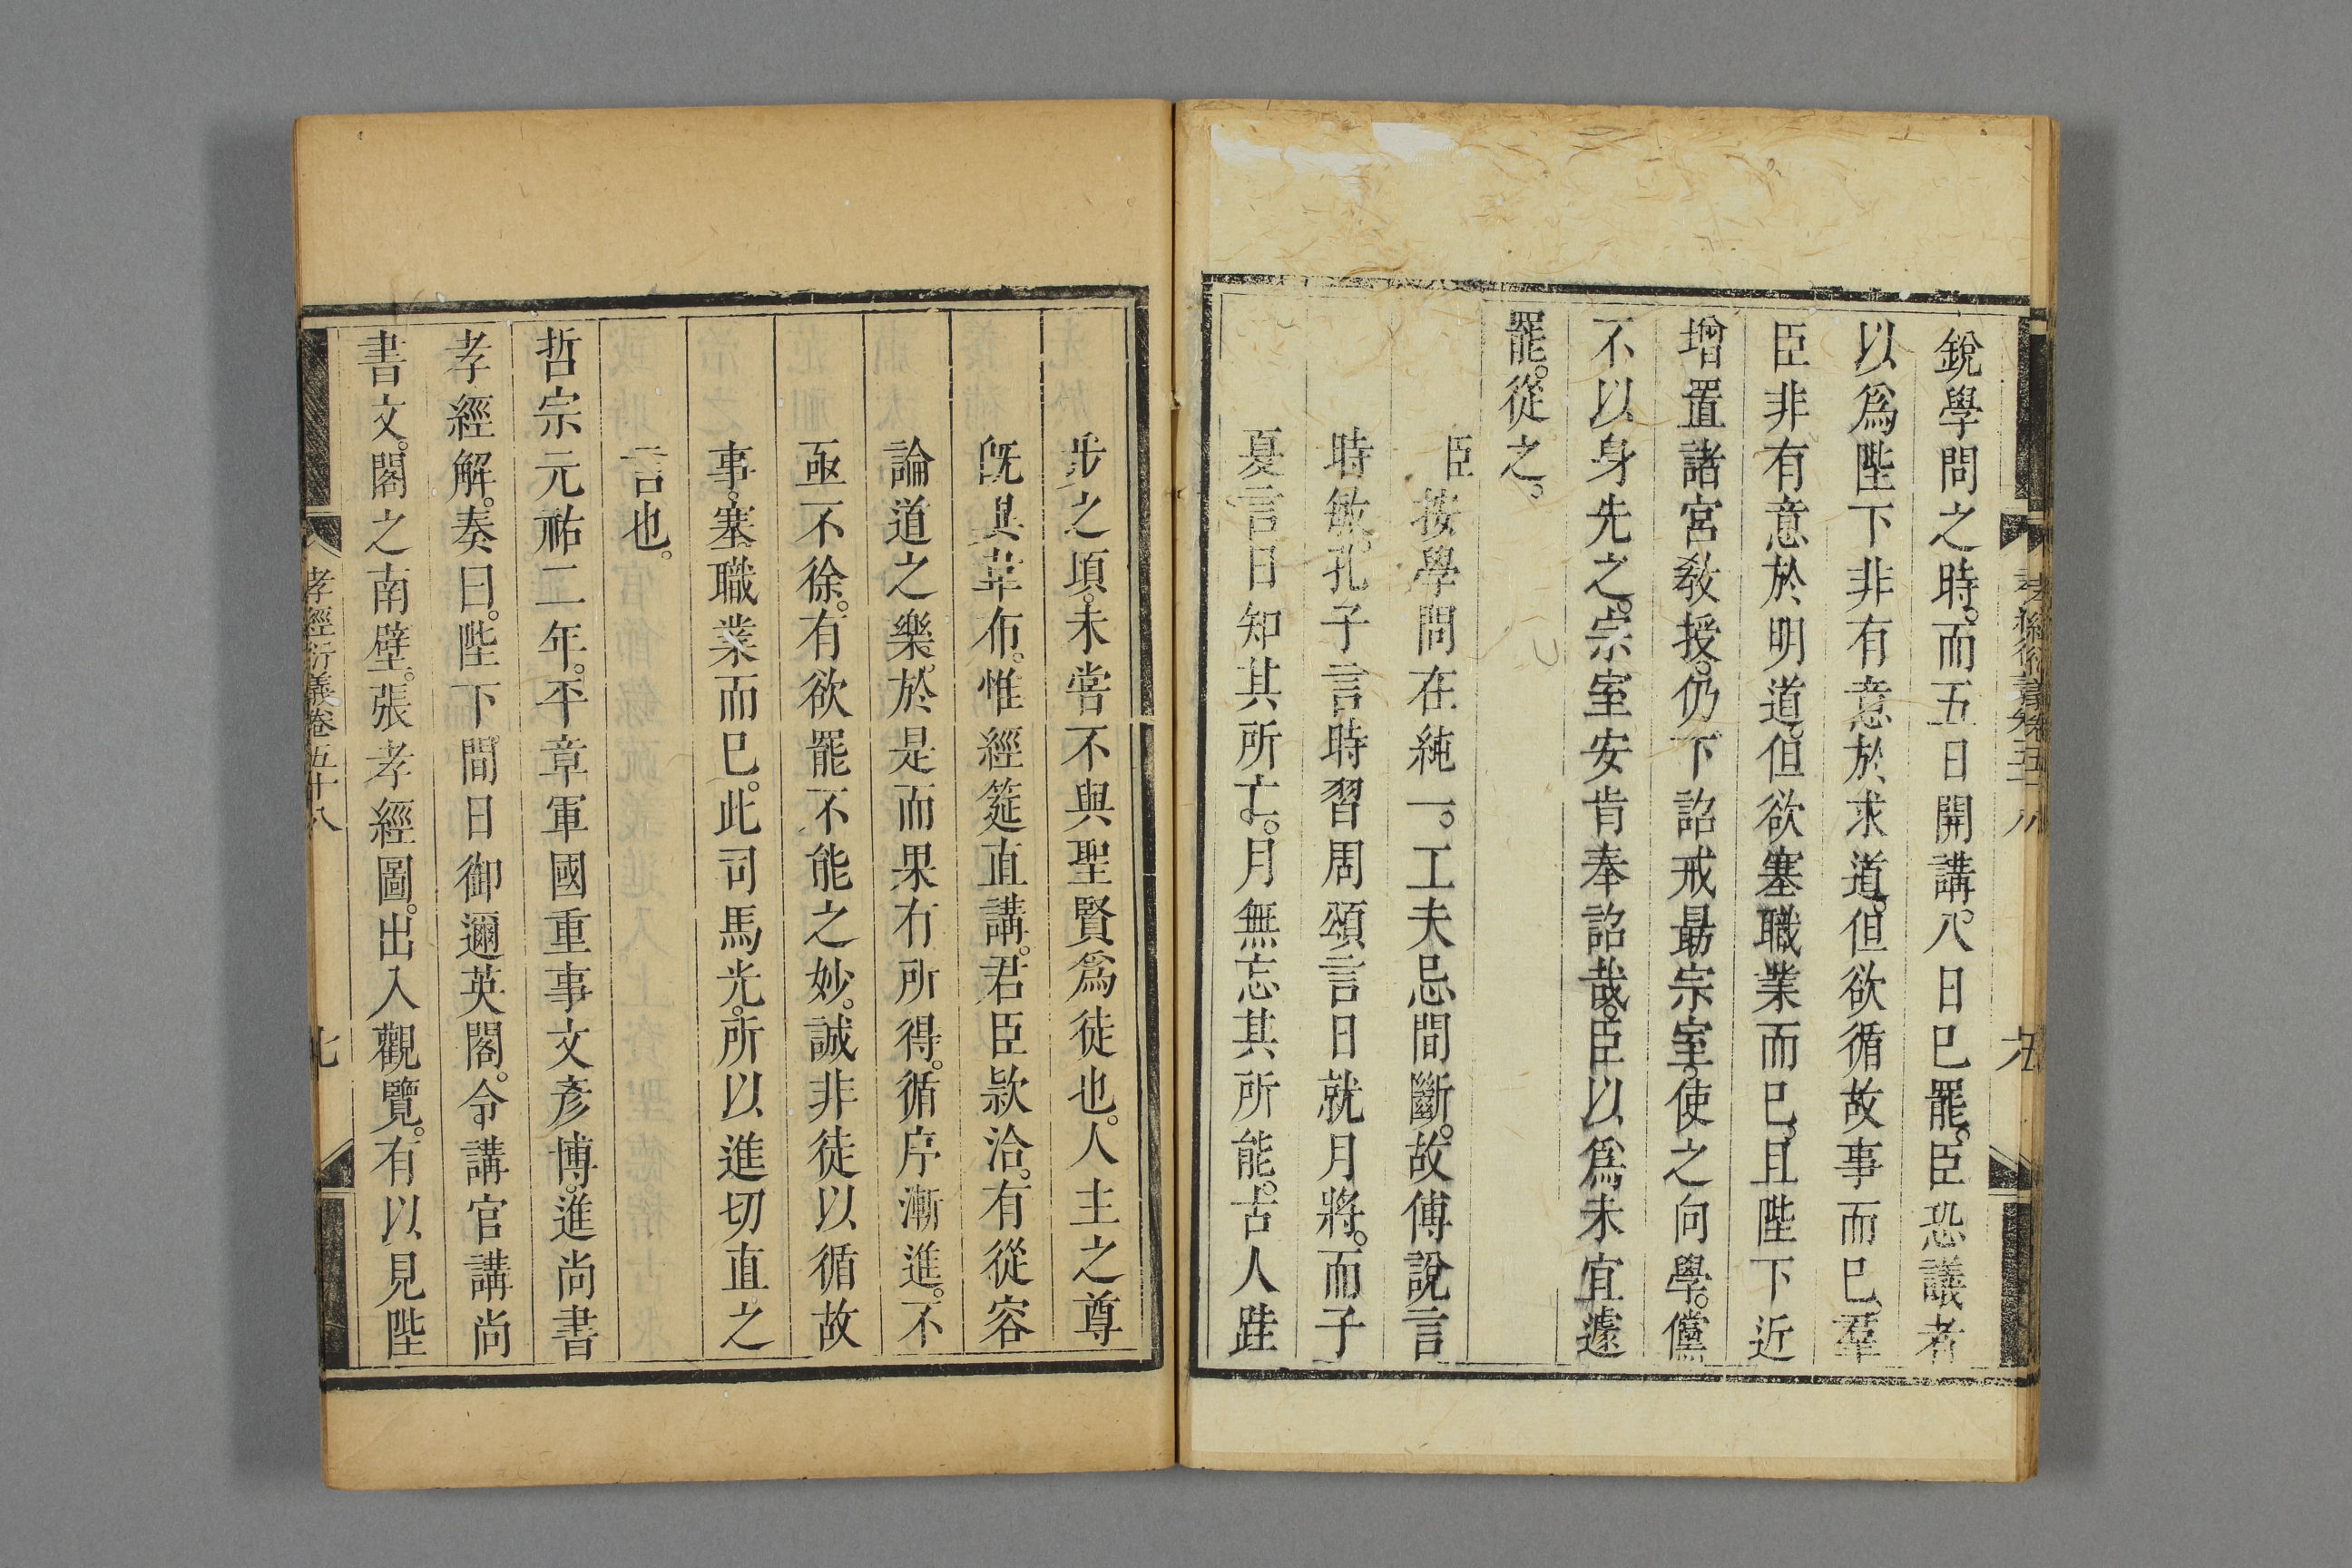 銳學問之時。而五日開講。八日巳罷。臣恐議者
以爲陛下非有意於求道。但欲循故事而巳。羣
臣非有意於明道。但欲塞職業而巳。且陛下近
增置諸宮教授。仍下詔戒最宗室。使之向學。儻
不以身先之。宗室安肯奉詔哉。臣以爲未宜遽
罷。從之。
臣按學問在純一。工夫忌間斷。故傅說言
時敏。孔子言時習周頌言日就月將。而子
夏言日知其所亡。月無忘其所能。古人跬
步之項。未嘗不與聖賢爲徒也。人主之尊
旣異韋布。惟經筵直講。君臣欵洽。有從容
論道之樂。於是而果有所得。循序漸進。不
亟不徐。有欲罷不能之妙。誠非徒以循故
事。塞職業而巳。此司馬光。所以進切直之
言也。
哲宗元祐二年。平章軍國重事文彥博。進尚書
孝經解。奏曰。陛下。間日御邇英閣。令講官講尚
書文。閣之南壁。張孝經圖。出入觀覽。有以見陛
孝經衍義卷五十八
七